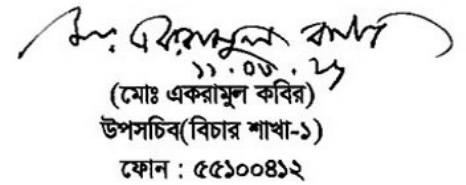 মোঃ একরামুল কবির
(মোঃ একরামুল কবির)
উপসচিব(বিচার শাখা-১)
ফোন : ৫৫১০০৪১২